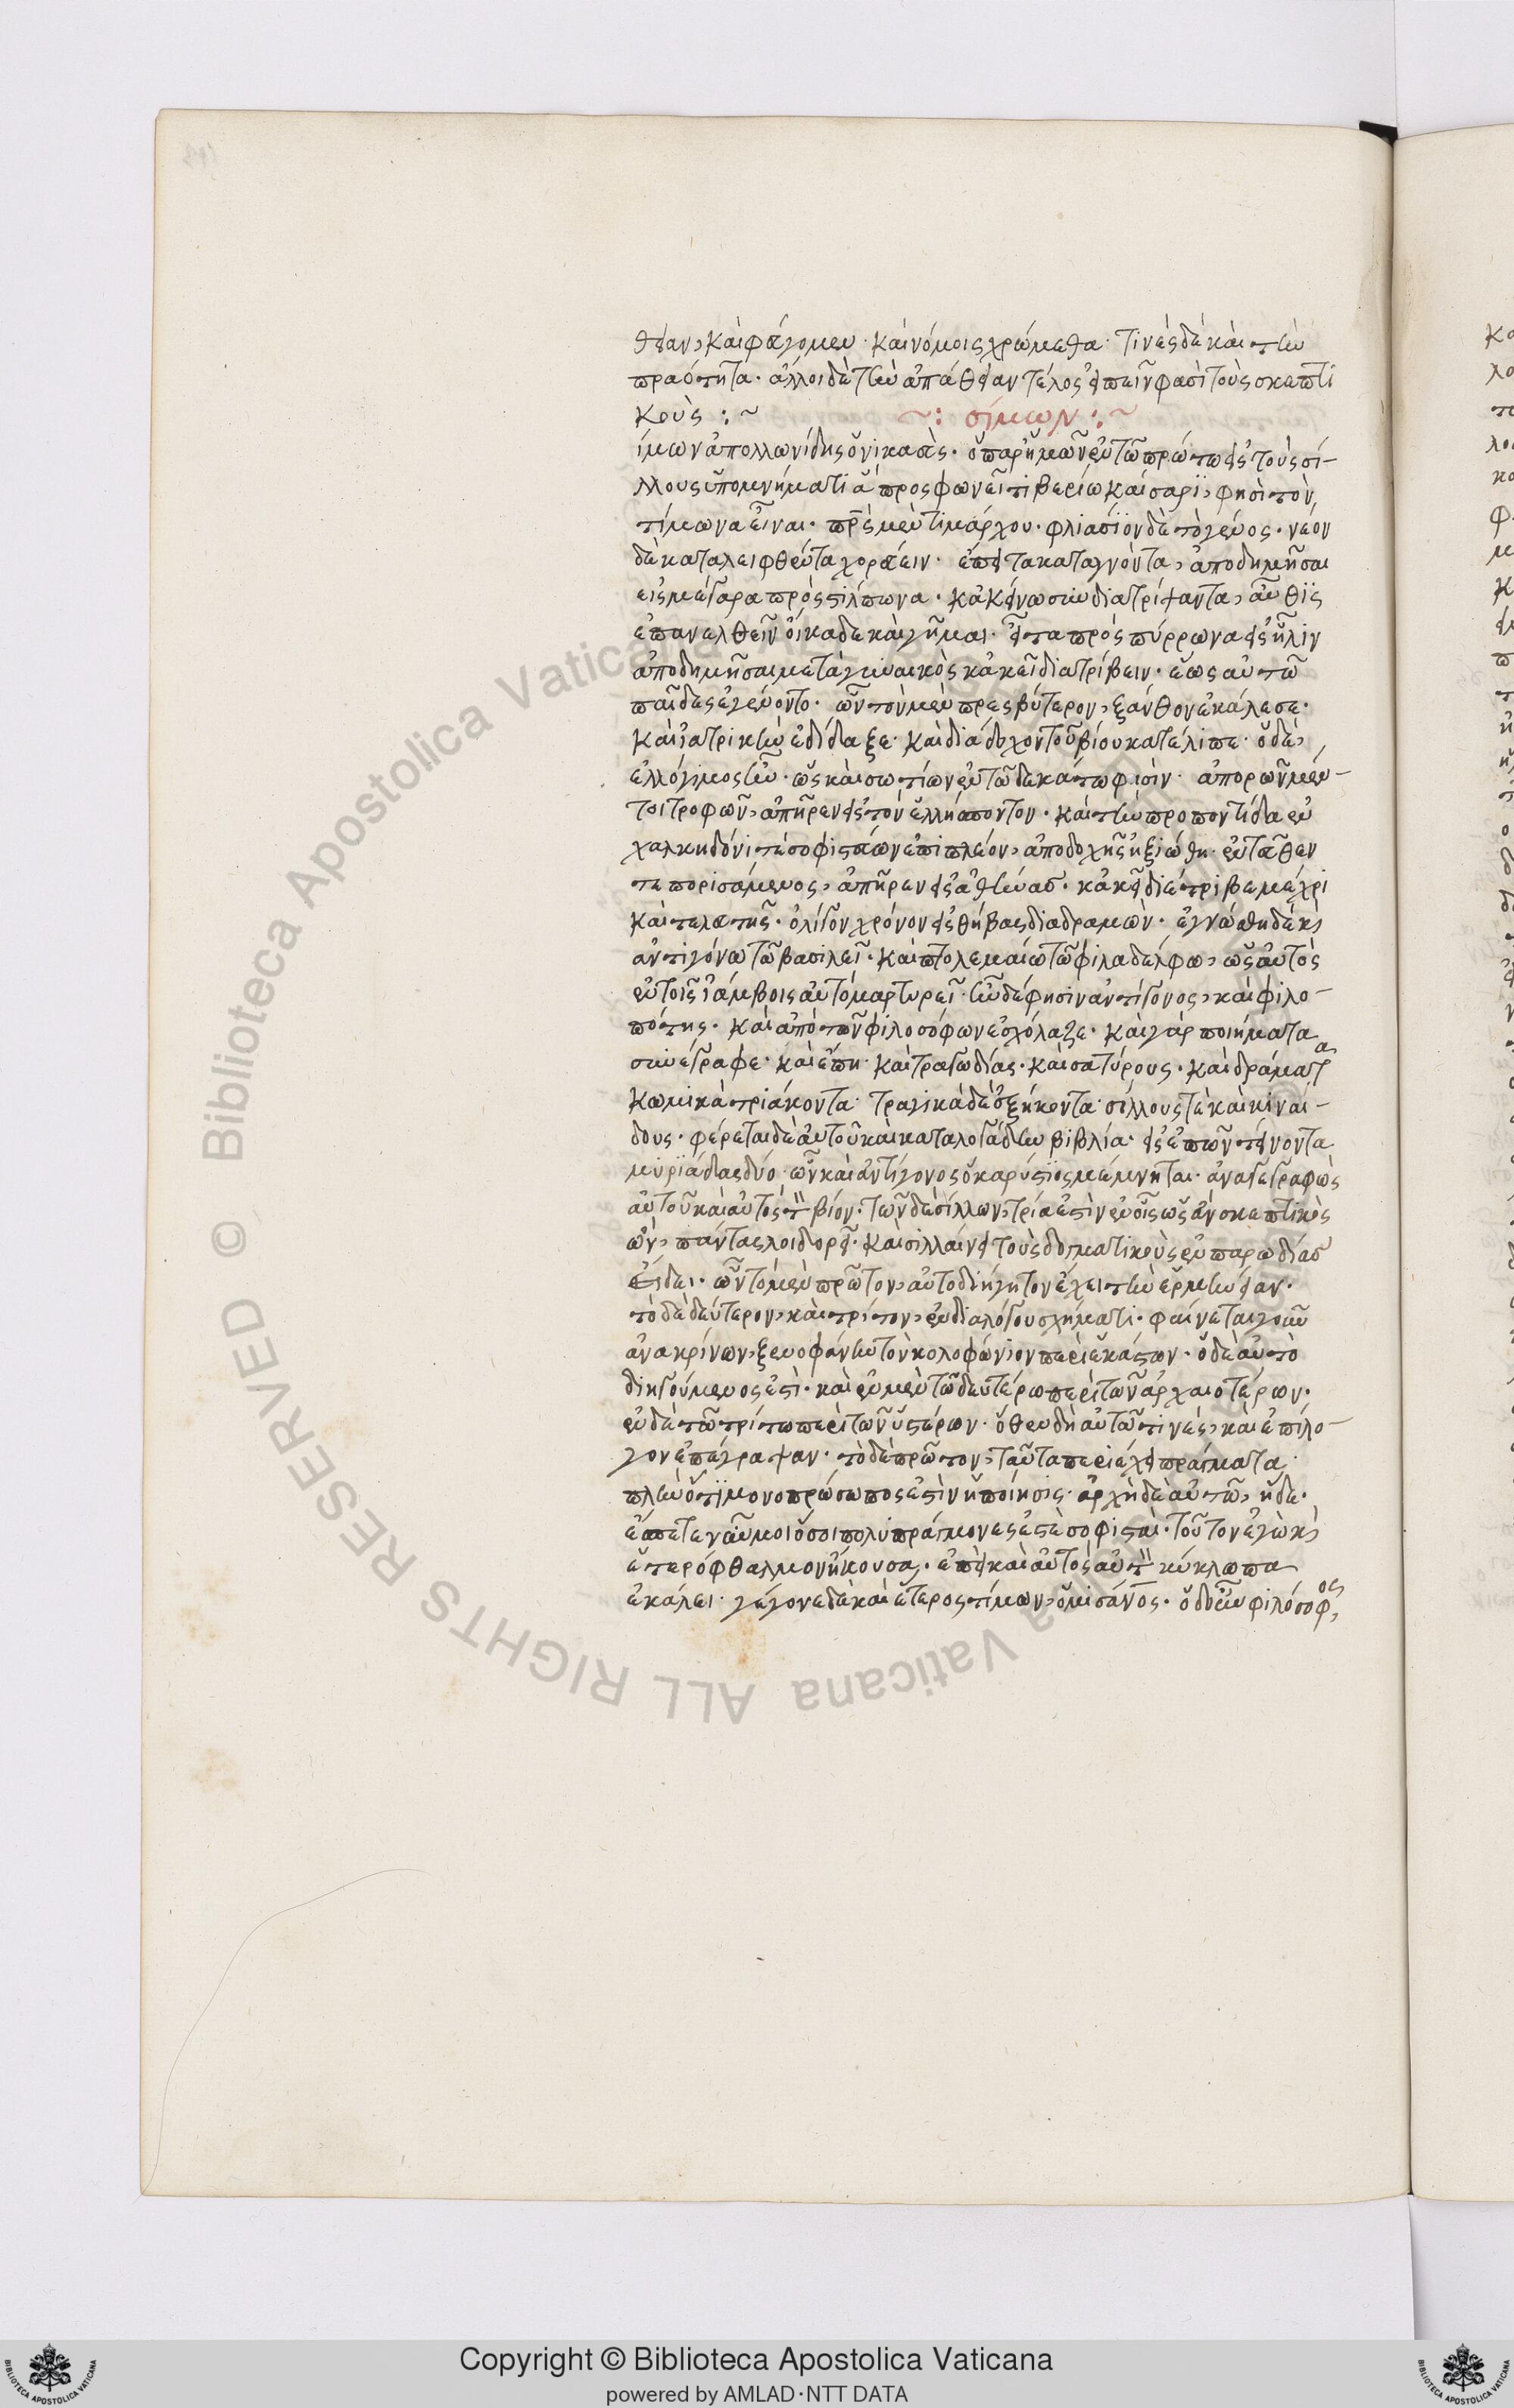 θειαν, καὶ φάγομεν· καὶ νόμοις χρώμεθα· τινὲς δὲ καὶ τὴν
πραότητα· ἄλλοι δὲ τὴν ἀπάθειαν τέλος εἰπεῖν φασὶ τοὺς σκεπτι
κούς :~ ~: σίμων :~
ίμων ἀπολλωνίδης ὁ νικαεὺς· ὁ παρ' ἡμῶν ἐν τῶ πρώτω εἰς τοὺς σί-
λλους ὑπομνήματι ἃ προσφωνεῖ τιβερίω καίσαρϊ, φησὶ τὸν
τίμωνα εἶναι· πρς μὲν τιμάρχου· φλιασϊον δὲ τὸ γένος· νέον
δὲ καταλειφθέντα χορεύειν· ἔπειτα καταγνόντα, ἀποδημῆσαι
εἰς μέγαρα πρὸς στίλπωνα· κἀκείνω συνδιατρίψαντα, αὖθϊς
ἐπανελθεῖν οἴκαδε καὶ γῆμαι· εἶτα πρὸς πύρρωνα εἰς ἦλιν
ἀποδημῆσαι μετὰ γυναικὸς κἀκεῖ διατρίβειν· ἕως αὐτῶ
παῖδες ἐγένοντο· ὧν τὸν μὲν πρεσβύτερον, ξάνθον ἐκάλεσε·
καὶ ἰατρικὴν ἐδίδαξε· καὶ διάδοχον τοῦ βίου κατέλιπε· ὁ δὲ,
ἐλλόγιμος ἦν· ὡς καὶ σωτίων ἐν τῶ δεκάτω φισὶν· ἀπορῶν μέν-
τοι τροφῶν, ἀπῆρεν εἰς τὸν ἑλλήσποντον· καὶ τὴν προποντίδα ἐν
χαλκηδόνι τὲ σοφιστεύων ἐπιπλέον, ἀποδοχῆς ἠξιώθη· ἐντεῦθεν
τε πορισάμενος, ἀπῆρεν εἰς ἀθήνας· κἀκεῖ διέτριβε μέχρι
καὶ τελευτῆς· ὀλίγον χρόνον εἰς θήβας διαδραμὼν· ἐγνώσθη δὲ κ(αὶ)
ἀντιγόνω τῶ βασιλεῖ· καὶ πτολεμαίω τῶ φιλαδέλφω, ὡς αὐτὸς
ἐν τοῖς ἰάμβοις αὐτὸ μαρτυρεῖ· ἦν δέ φησιν ἀντίγονος, καὶ φιλο-
πότης· καὶ ἀπὸ τῶν φιλοσόφων ἐσχόλαζε· καὶ γὰρ ποιήματα
συνέγραφε· καὶ ἔπη· καὶ τραγωδίας· καὶ σατύρους· καὶ δράματα
κωμικὰ τριάκοντα· τραγικὰ δὲ ἑξήκοντα· σίλλους τὲ καὶ κιναί-
δους· φέρεται δὲ αὐτοῦ καὶ καταλογάδην βιβλία· εἰς ἐπῶν τείνοντα
μυρϊάδας δύο· ὧν καὶ ἀντίγονος ὁ καρύστϊος μέμνηται· ἀναγεγραφὼς
αὐτοῦ καὶ αὐτὸς τὸν βίον· τῶν δὲ σίλλων, τρία ἐστὶν ἐν οἷς ὡς ἂν σκεπτικὸς
ὢν, πάντας λοιδορεῖ· καὶ σιλλαίνει τοὺς δογματικοὺς ἐν παρωδίας
εἴδει· ὧν τὸ μὲν πρῶτον, αὐτοδιήγητον ἔχει τὴν ἑρμηνείαν·
τὸ δὲ δεύτερον, καὶ τρίτον, ἐν διαλόγου σχήματι· φαίνεται γοῦν
ἀνακρίνων, ξενοφάνην τὸν κολοφώνιον περὶ ἑκάστων· ὁ δὲ αὐτὸ
διηγούμενος ἐστὶ· καὶ ἐν μὲν τῶ δευτέρω περὶ τῶν ἀρχαιοτέρων·
ἐν δὲ τῶ τρίτω περὶ τῶν ὑστέρων· ὅθεν δὴ αὐτῶ τινὲς, καὶ ἐπίλο-
γον ἐπέγραψαν· τὸ δὲ πρῶτον, ταῦτα περιέχει πράγματα·
πλὴν ὅτϊ μονοπρόσωπος ἐστὶν ἡ ποίησις· ἀρχὴ δὲ αὐτῶ, ἥδε·
ἔσπετε νῦν μοι ὅσοι πολυπράγμονες ἐστὲ σοφισταὶ· τοῦτον ἐγὼ κ(αὶ)
ἑτερόφθαλμον ἤκουσα, ἐπεὶ καὶ αὐτὸς αὑτὸν κύκλωπα
ἐκάλει· γέγονε δὲ καὶ ἕτερος τίμων, ὁ μισάνος· ὁ δ' οὖν φιλόσοφος,